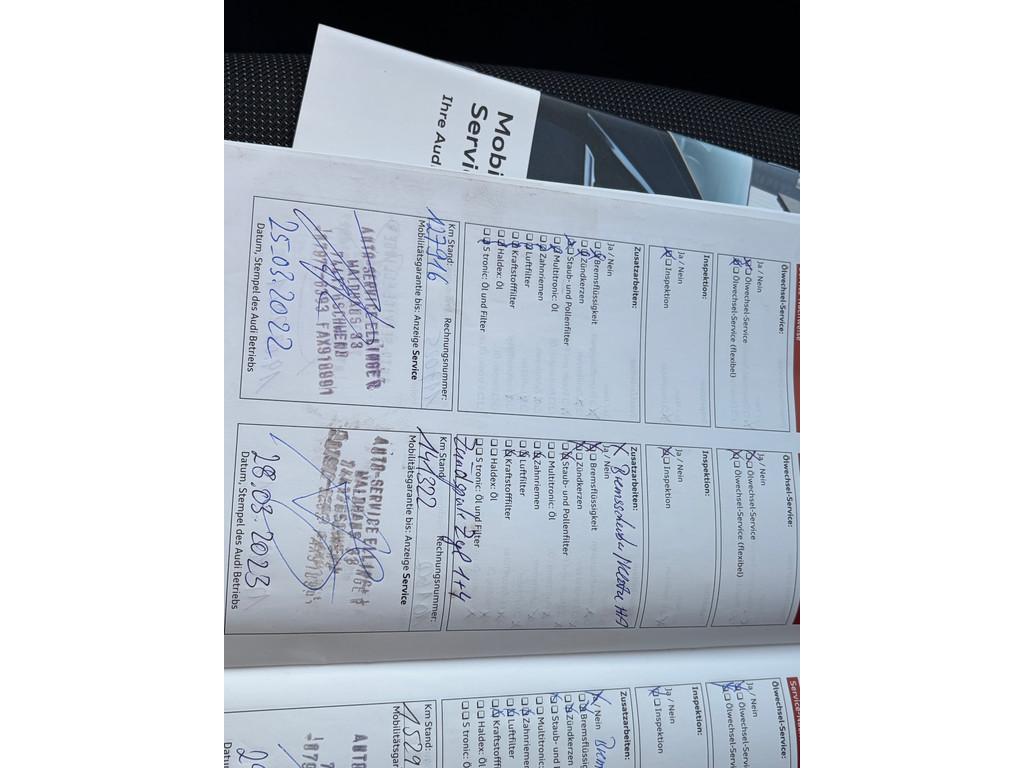 Mobi
Servi
Ihre Aud
Ölwechsel-Service:
Ja / Nein
Ölwechsel-Service
Ölwechsel-Service (flexibel)
Inspektion:
Ja / Nein
Inspektion
Zusatzarbeiten:
Ja / Nein
Bremsflüssigkeit
Zündkerzen
Staub- und Pollenfilter
Multitronic: Öl
Zahnriemen
Luftfilter
Kraftstofffilter
Haldex: Öl
S tronic: Öl und Filter
Km Stand: Rechnungsnummer:
127916
Mobilitätsgarantie bis: Anzeige Service
AUTO-SERVICE ELLINGER
25.03.2022
Datum, Stempel des Audi Betriebs
Ölwechsel-Service:
Ja / Nein
Ölwechsel-Service
Ölwechsel-Service (flexibel)
Inspektion:
Ja / Nein
Inspektion
Zusatzarbeiten:
Ja / Nein
Bremsflüssigkeit
Zündkerzen
Staub- und Pollenfilter
Multitronic: Öl
Zahnriemen
Luftfilter
Kraftstofffilter
Haldex: Öl
S tronic: Öl und Filter
Zündspule Zyl 1+4
Km Stand: Rechnungsnummer:
141322
Mobilitätsgarantie bis: Anzeige Service
AUTO-SERVICE ELLINGER
28.03.2023
Datum, Stempel des Audi Betriebs
Ölwechsel-Service:
Ja / Nein
Ölwechsel-Service
Ölwechsel-
Inspektion:
Ja / Nein
Inspektion
Zusatzarbeiten:
Ja / Nein
Bremsflüssig
Zündkerzen
Staub- und
Multitronic:
Zahnriemen
Luftfilter
Kraftstofff
Haldex: Öl
S tronic: Ö
Km Stand:
1529
Mobilitätsgar
Datu